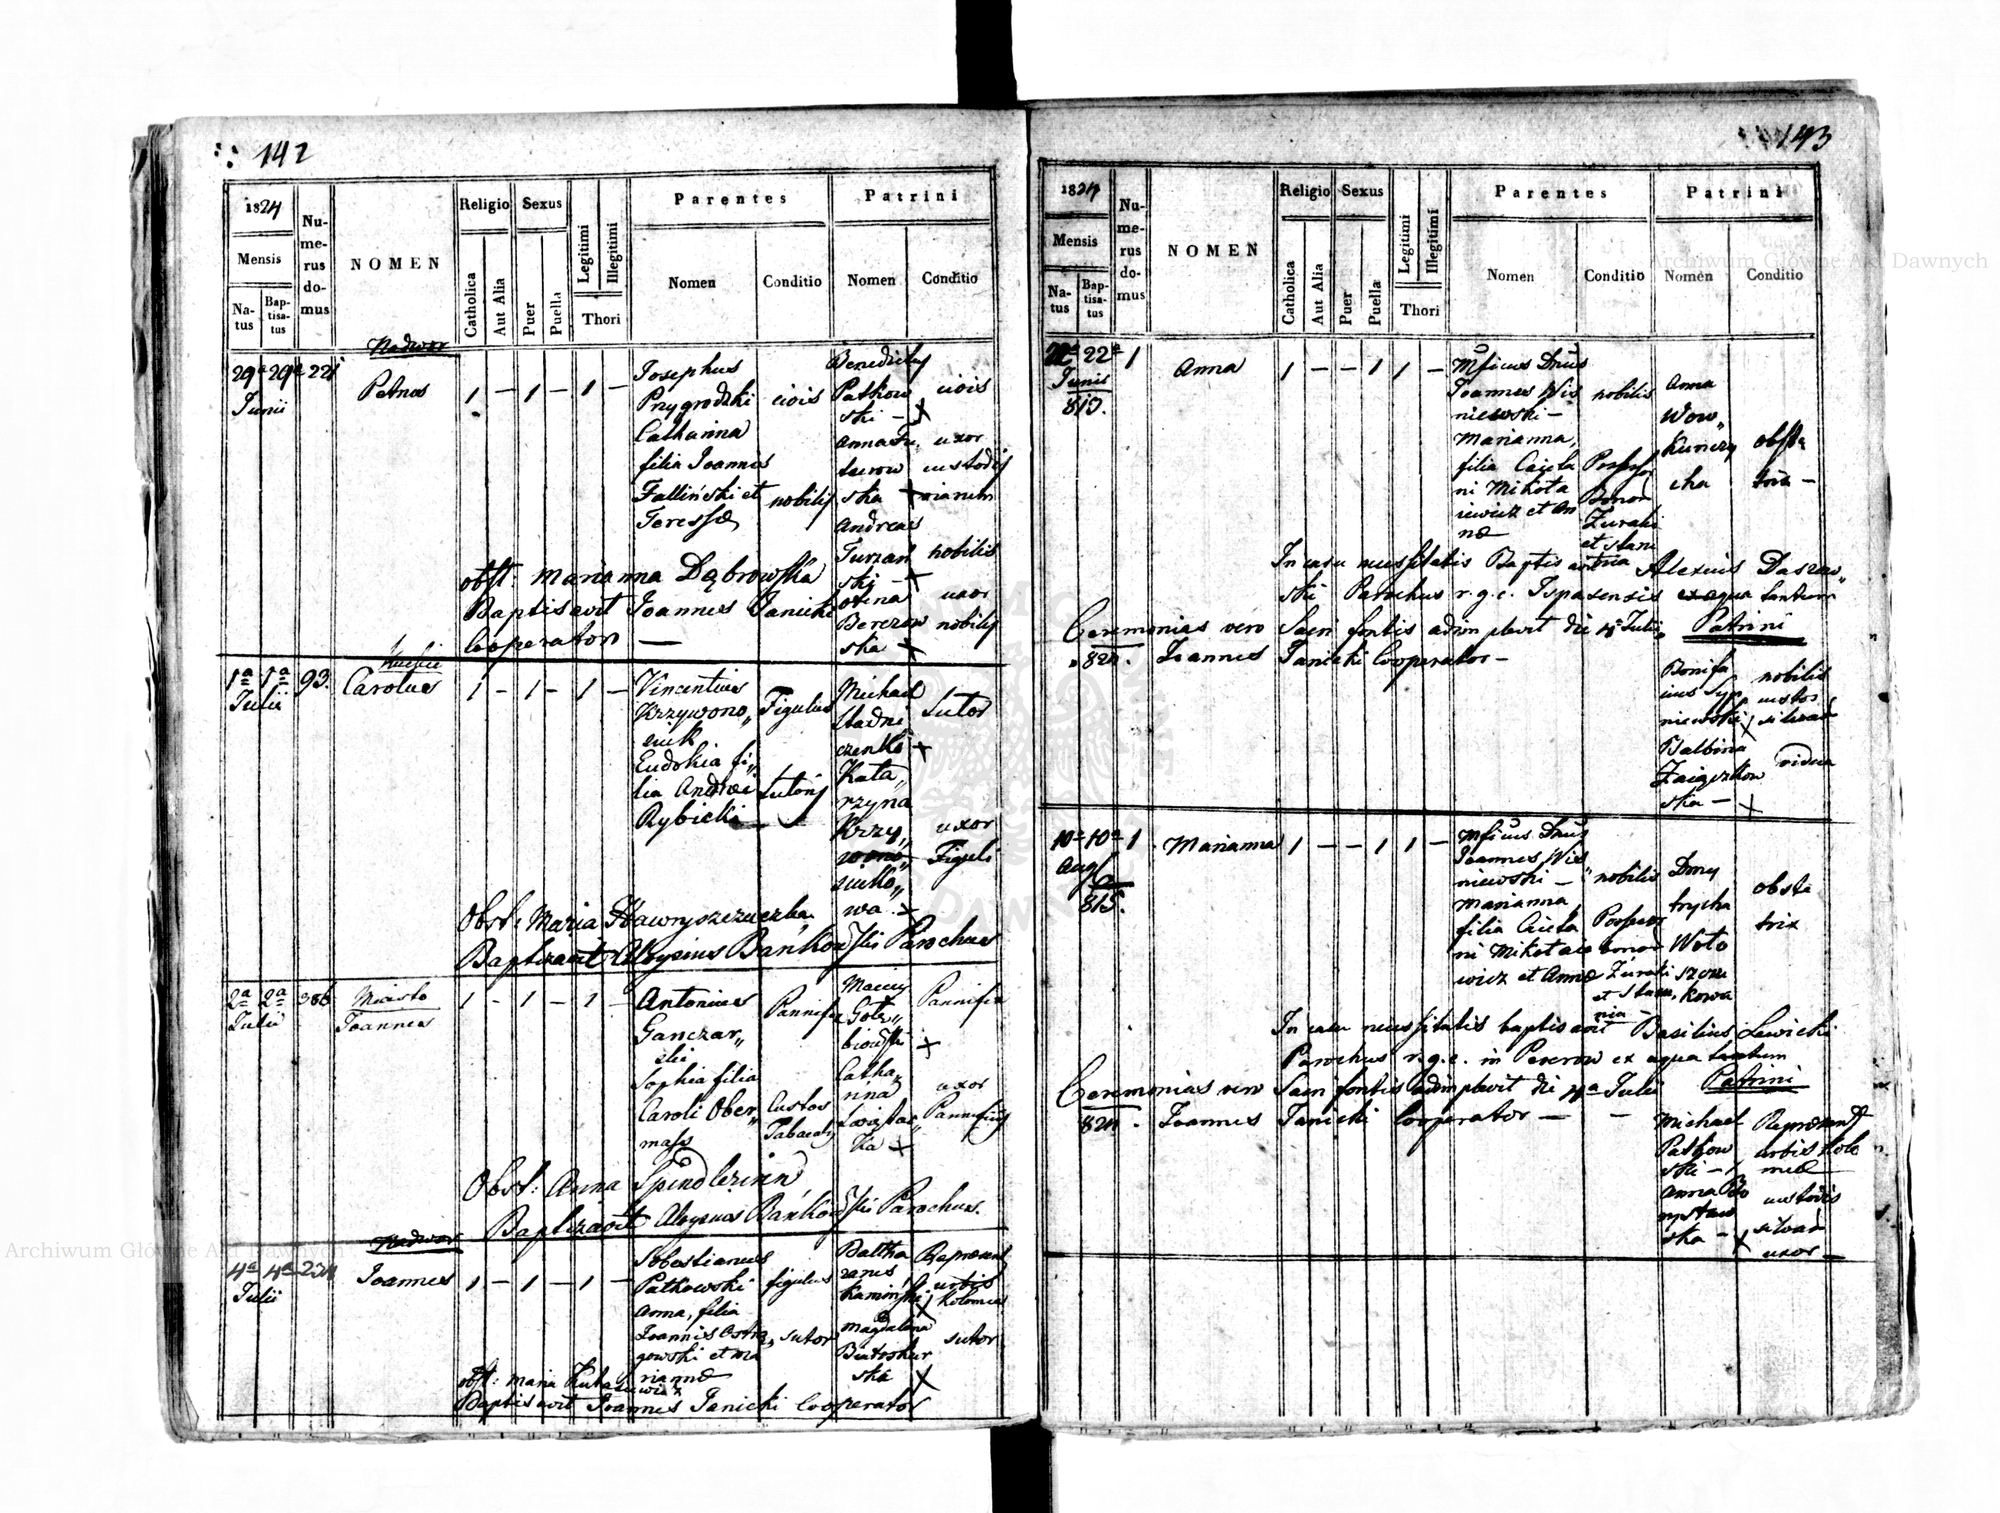 142
1824
Mensis
Natus
Baptisatus
Numerus domus
NOMEN
Religio
Catholica
Aut Alia
Sexus
Puer
Puella
Legitimi
Illegitimi
Thori
Parentes
Nomen
Conditio
Patrini
Nomen
Conditio
Nadwor
29a 29a 221
Junii
Petrus
1 – 1 – 1 –
Josephus
Przygrodzki
Catharina
filia Joannis
Falliński et
Feressæ
civis
nobilis
Benedictus
Patkow
ski –
Anna
ska
Andreas
Turzań
ski –
Berezow
ska
civis
uxor
custodis
nobilis
uxor
nobilis
obst: Marianna Dąbrowska
Baptisavit Joannes Janicki
Cooperator —
1a 1a 93.
Julii
Carolus
1 – 1 – 1 –
Vincentius
Krzywono„
siuk
Eudokia fi„
lia Andrei
Rybicki
Figulus
Sutoris
Michael
czenko
Kata„
rzyna
Krzy„
wono„
siuko„
wa
Sutor
uxor
Figuli
Obst: Maria Hawryszczuczka
Baptizavit Aloysius Bańkowski Parochus
2a 2a 386
Julii
Miasto
Joannes
1 – 1 – 1 –
Antonius
Ganczar„
ski
Sophia filia
Caroli Ober„
mass
Pannifex
Custos
Tabacalis
Maciej
Gołę„
biowski
Catha„
rina
ka
Pannifex
uxor
Pannificis
Obst: Anna Spindlerin
Baptizavit Aloysius Bańkowski Parochus.
Nadwor
4a 4a 234
Julii
Joannes
1 – 1 – 1 –
Sobestianus
Patkowski
Anna, filia
Joannis Ostro„
gowski et Ma
riannæ
figulus
sutor
Baltha
zarus
Kamiński
Magdalena
Białoskur
ska
Repræsent
urbis
Kolomeæ
sutor
obst: Maria Kukasiewicz
Baptisavit Joannes Janicki Cooperator
143
1824
Mensis
Natus
Baptisatus
Numerus domus
NOMEN
Religio
Catholica
Aut Alia
Sexus
Puer
Puella
Legitimi
Illegitimi
Thori
Parentes
Nomen
Conditio
Patrini
Nomen
Conditio
22a 22a 1
Junii
813.
Anna
1 – – 1 1 –
Mficus Dnus
Joannes Wis
niewski –
Marianna,
filia Cajeta
ni Mikoła
iewicz et An
næ
nobilis
Possessor
Bonor
Zuraki
et Stani
Anna
Wow„
kunczy
cha
obste
trix –
In casu necessitatis Baptisavit Alexius Daszew„
ski Parochus r. g. c. Ispasensis ex aqua tantum
Ceremonias vero Sacri fontis adimplevit die 4a Julii Patrini
824. Joannes Janicki Cooperator –
Bonifa
cius Syp
niewski
Balbina
Zaigczkow
ska –
nobilis
custos
vidua
10a 10a 1
Aug
815.
Marianna
1 – – 1 1 –
Mficus Dnus
Joannes Wis
niewski –
Marianna,
filia Cajeta
ni Mikołaie
wicz et Annæ
nobilis
Possessor
bonor
Zuraki
et Stani
nia –
Dmy
trycha
Woło
szczu
kowa
obste
trix
In casu necessitatis baptisavit Basilius Lewicki
Parochus r. g. c. in Pererow ex aqua tantum
Ceremonias vero Sacri fontis adimplevit die 4a Julii Patrini
824. Joannes Janicki Cooperator — –
Michael
Patkow
ski –
Anna
ska –
Repræsent
urbis Kolo
meæ
custodis
silvar
uxor –
Archiwum Główne Akt Dawnych
Archiwum Główne Akt Dawnych